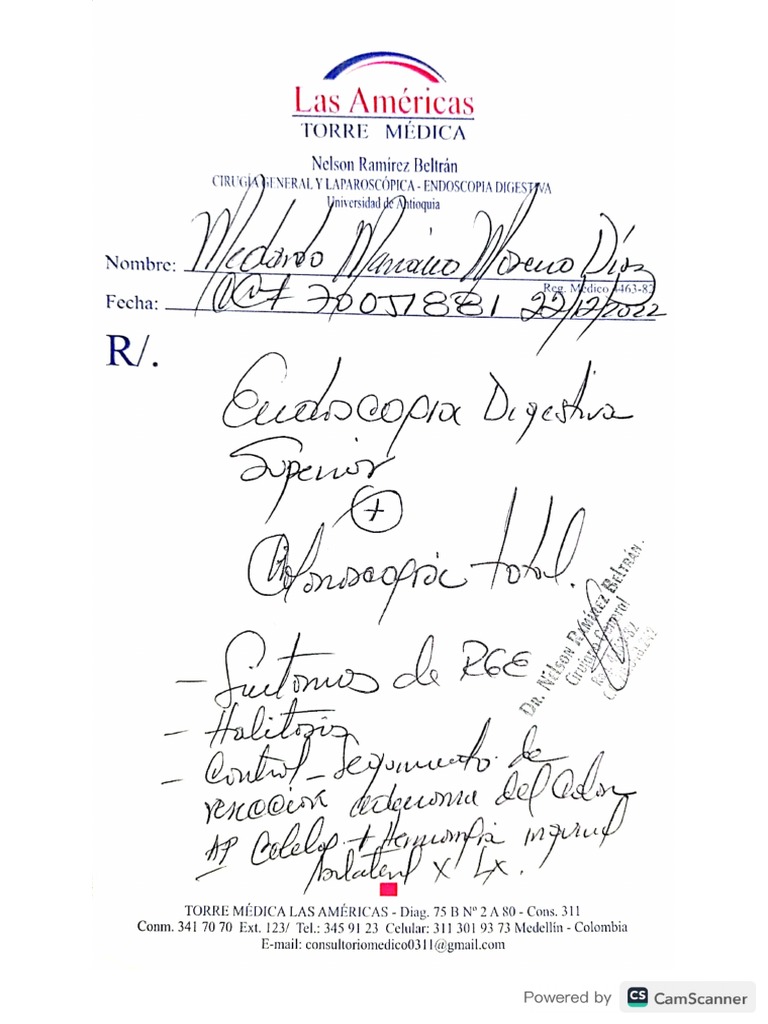 Las Américas
TORRE MÉDICA
Nelson Ramírez Beltrán
CIRUGÍA GENERAL Y LAPAROSCÓPICA - ENDOSCOPIA DIGESTIVA
Universidad de Antioquia
Nombre: Medardo Mariano Moreno Díaz
Reg. Médico 4463-82
Fecha: 70051881 22/12/2022
R/.
Endoscopia Digestiva
Superior
+
Colonoscopia total.
Dr. Nelson Ramírez Beltrán.
Cirujano General
- Síntomas de RGE
- Halitosis
- Control - Seguimiento de
resección adenoma del Colon
AP Colelap + Herniorrafia inguinal
bilateral x Lx.
TORRE MÉDICA LAS AMÉRICAS - Diag. 75 B Nº 2 A 80 - Cons. 311
Conm. 341 70 70 Ext. 123/ Tel.: 345 91 23 Celular: 311 301 93 73 Medellín - Colombia
E-mail: consultoriomedico0311@gmail.com
Powered by CS CamScanner